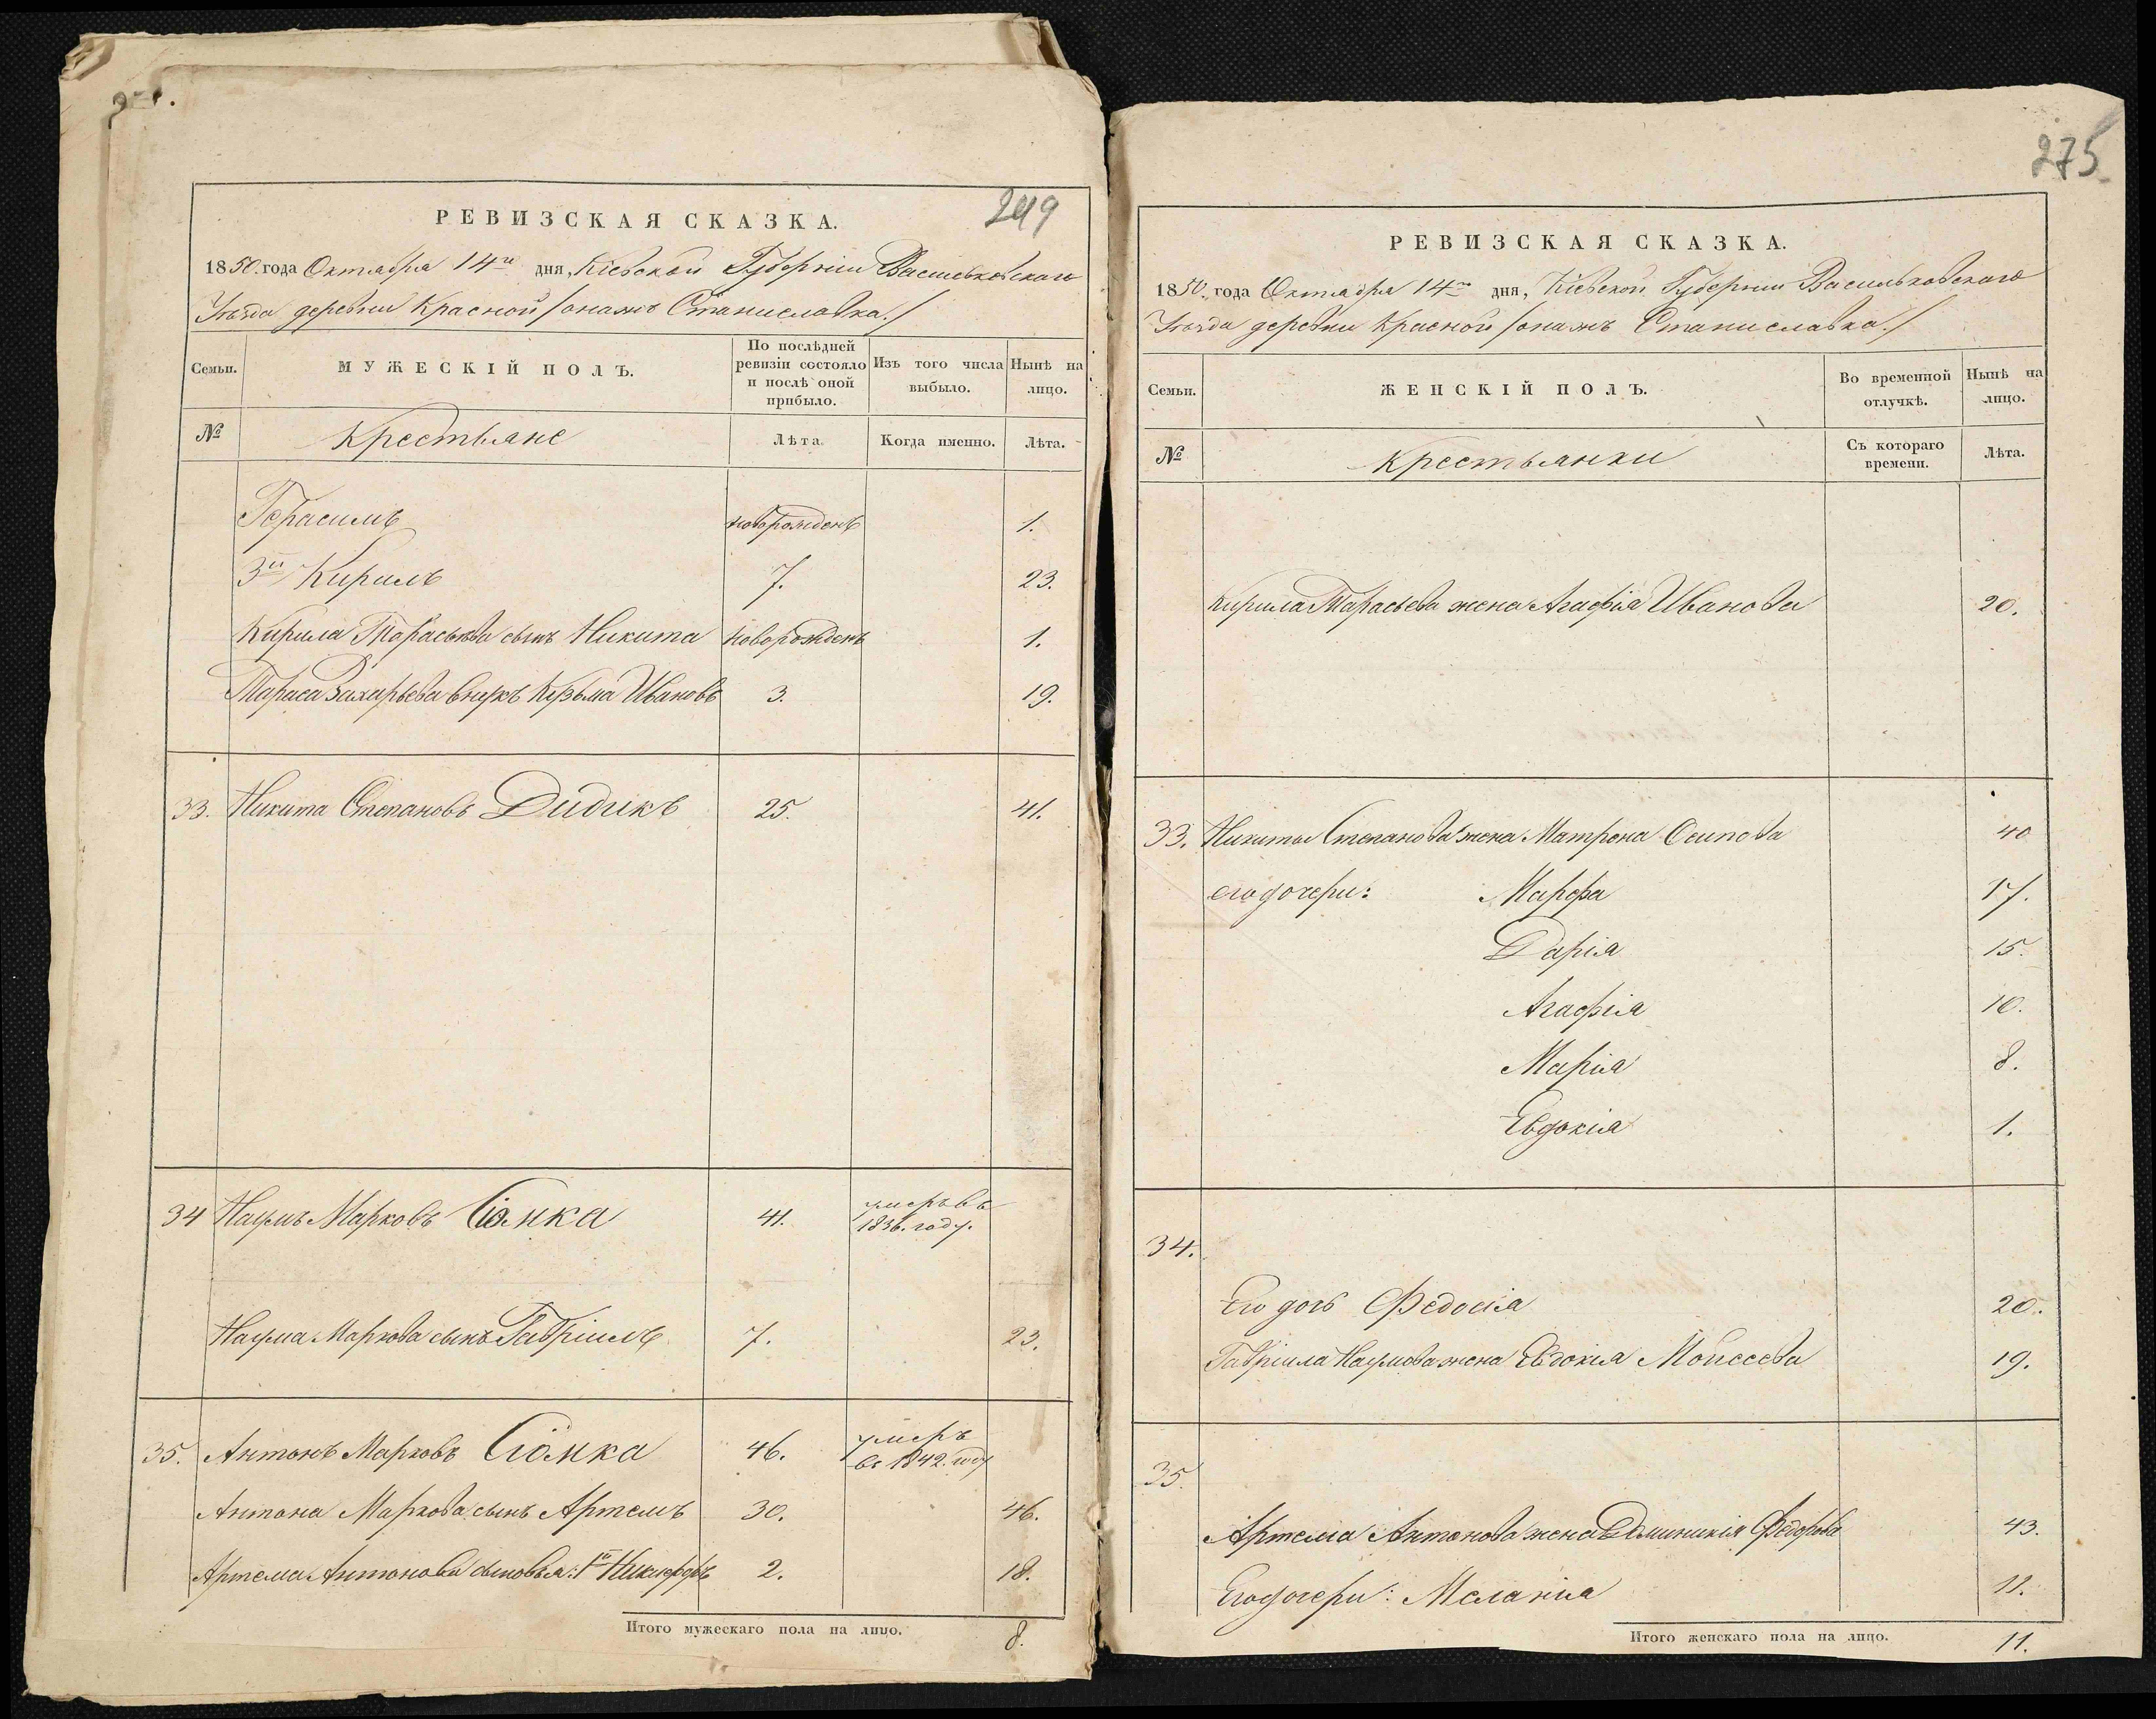 249
РЕВИЗСКАЯ СКАЗКА.
1850. года Октября 14го дня, Кіевской Губерніи Васильковскаго
Уѣзда деревни Красной /онажъ Станиславка./
Семьи.
МУЖЕСКІЙ ПОЛЪ.
По послѣдней ревизіи состояло и послѣ оной прибыло.
Изъ того числа выбыло.
Нынѣ на лицо.
№
Крестьяне
Лѣта.
Когда именно.
Лѣта.
Герасимъ новорожденъ 1.
3й Кирилъ 7. 23.
Кирила Тарасьева сынъ Никита новорожденъ 1.
Тараса Захарьева внукъ Козьма Ивановъ 3. 19.
33. Никита Степановъ Дидикъ 25. 41.
34 Наумъ Марковъ 41. умеръ въ
1836. году.
Наума Маркова сынъ Гавріилъ 7. 23.
35. Антонъ Марковъ 46. умеръ
въ 1842. году
Антона Маркова сынъ Артемъ 30. 46.
Артема Антонова сыновья: 1й Никифоръ 2. 18.
Итого мужескаго пола на лицо. 8.
275
РЕВИЗСКАЯ СКАЗКА.
1850. года Октября 14го дня, Кіевской Губерніи Васильковскаго
Уѣзда деревни Красной /онажъ Станиславка./
Семьи.
ЖЕНСКІЙ ПОЛЪ.
Во временной отлучкѣ.
Нынѣ на лицо.
№
Крестьянки
Съ котораго времени.
Лѣта.
Кирила Тарасьева жена Агафія Иванова 20.
33. Никиты Степанова жена Матрона Осипова 40
его дочери: Марфа 17.
Дарія 15.
Агафія 10.
Марія 8.
Евдокія 1.
34.
Его дочь Федосія 20.
Гавріила Наумова жена Евдокія Моисеева 19.
35.
Артема Антонова жена Доминикія Федорова 43.
Его дочери: Меланія 11.
Итого женскаго пола на лицо. 11.